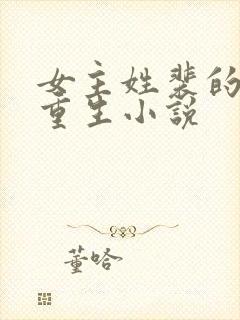 女主姓裴的
重生小说
董哈